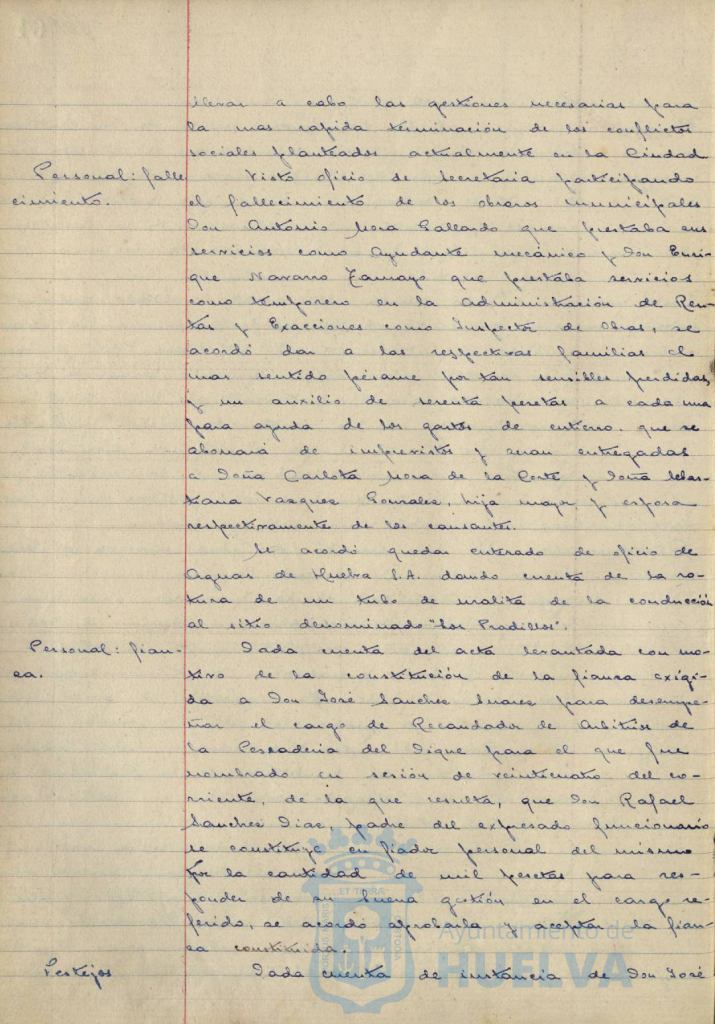 llevar a cabo las gestiones necesarias para
la mas rapida terminación de los conflictos
sociales planteados actualmente en la Ciudad
Personal: falle
cimiento.
Visto oficio de Secretaria participando
el fallecimiento de los obreros municipales
Don Antonio Mora Gallardo que prestaba sus
servicios como Ayudante mecánico y Don Enri-
que Navarro Tamayo que prestaba servicios
como temporero en la administración de Ren-
tas y Exacciones como Inspector de Obras, se
acordó dar a las respectivas familias el
mas sentido pésame por tan sensibles perdidas,
y un auxilio de pesetas a cada una
para ayuda de los gastos de entierro que se
abonará de imprevistos y seran entregadas
a Doña Carlota Mora de la Corte y Doña Sebas-
tiana Vazquez Gonzalez, hija mayor y esposa
respectivamente de los causantes.
Se acordó quedar enterado de oficio de
Aguas de Huelva S.A. dando cuenta de la ro-
tura de un tubo de uralita de la conducción
al sitio denominado "Los Pradillos".
Personal: fian-
za.
Dada cuenta del acta levantada con mo-
tivo de la constitución de la fianza exigi-
da a Don José Sanchez Suarez para desempe-
ñar el cargo de Recaudador de Arbitrios de
la Pescaderia del Dique para el que fue
nombrado en sesión de veinticuatro del co-
rriente, de la que resulta, que Don Rafael
Sanchez Diaz, padre del expresado funcionario
se constituye en fiador personal del mismo
por la cantidad de mil pesetas para res-
ponder de su buena gestión en el cargo re-
ferido, se acordó aprobarla y aceptar la fian-
za constituida.
Festejos
Dada cuenta de instancia de Don José
Ayuntamiento de
HUELVA